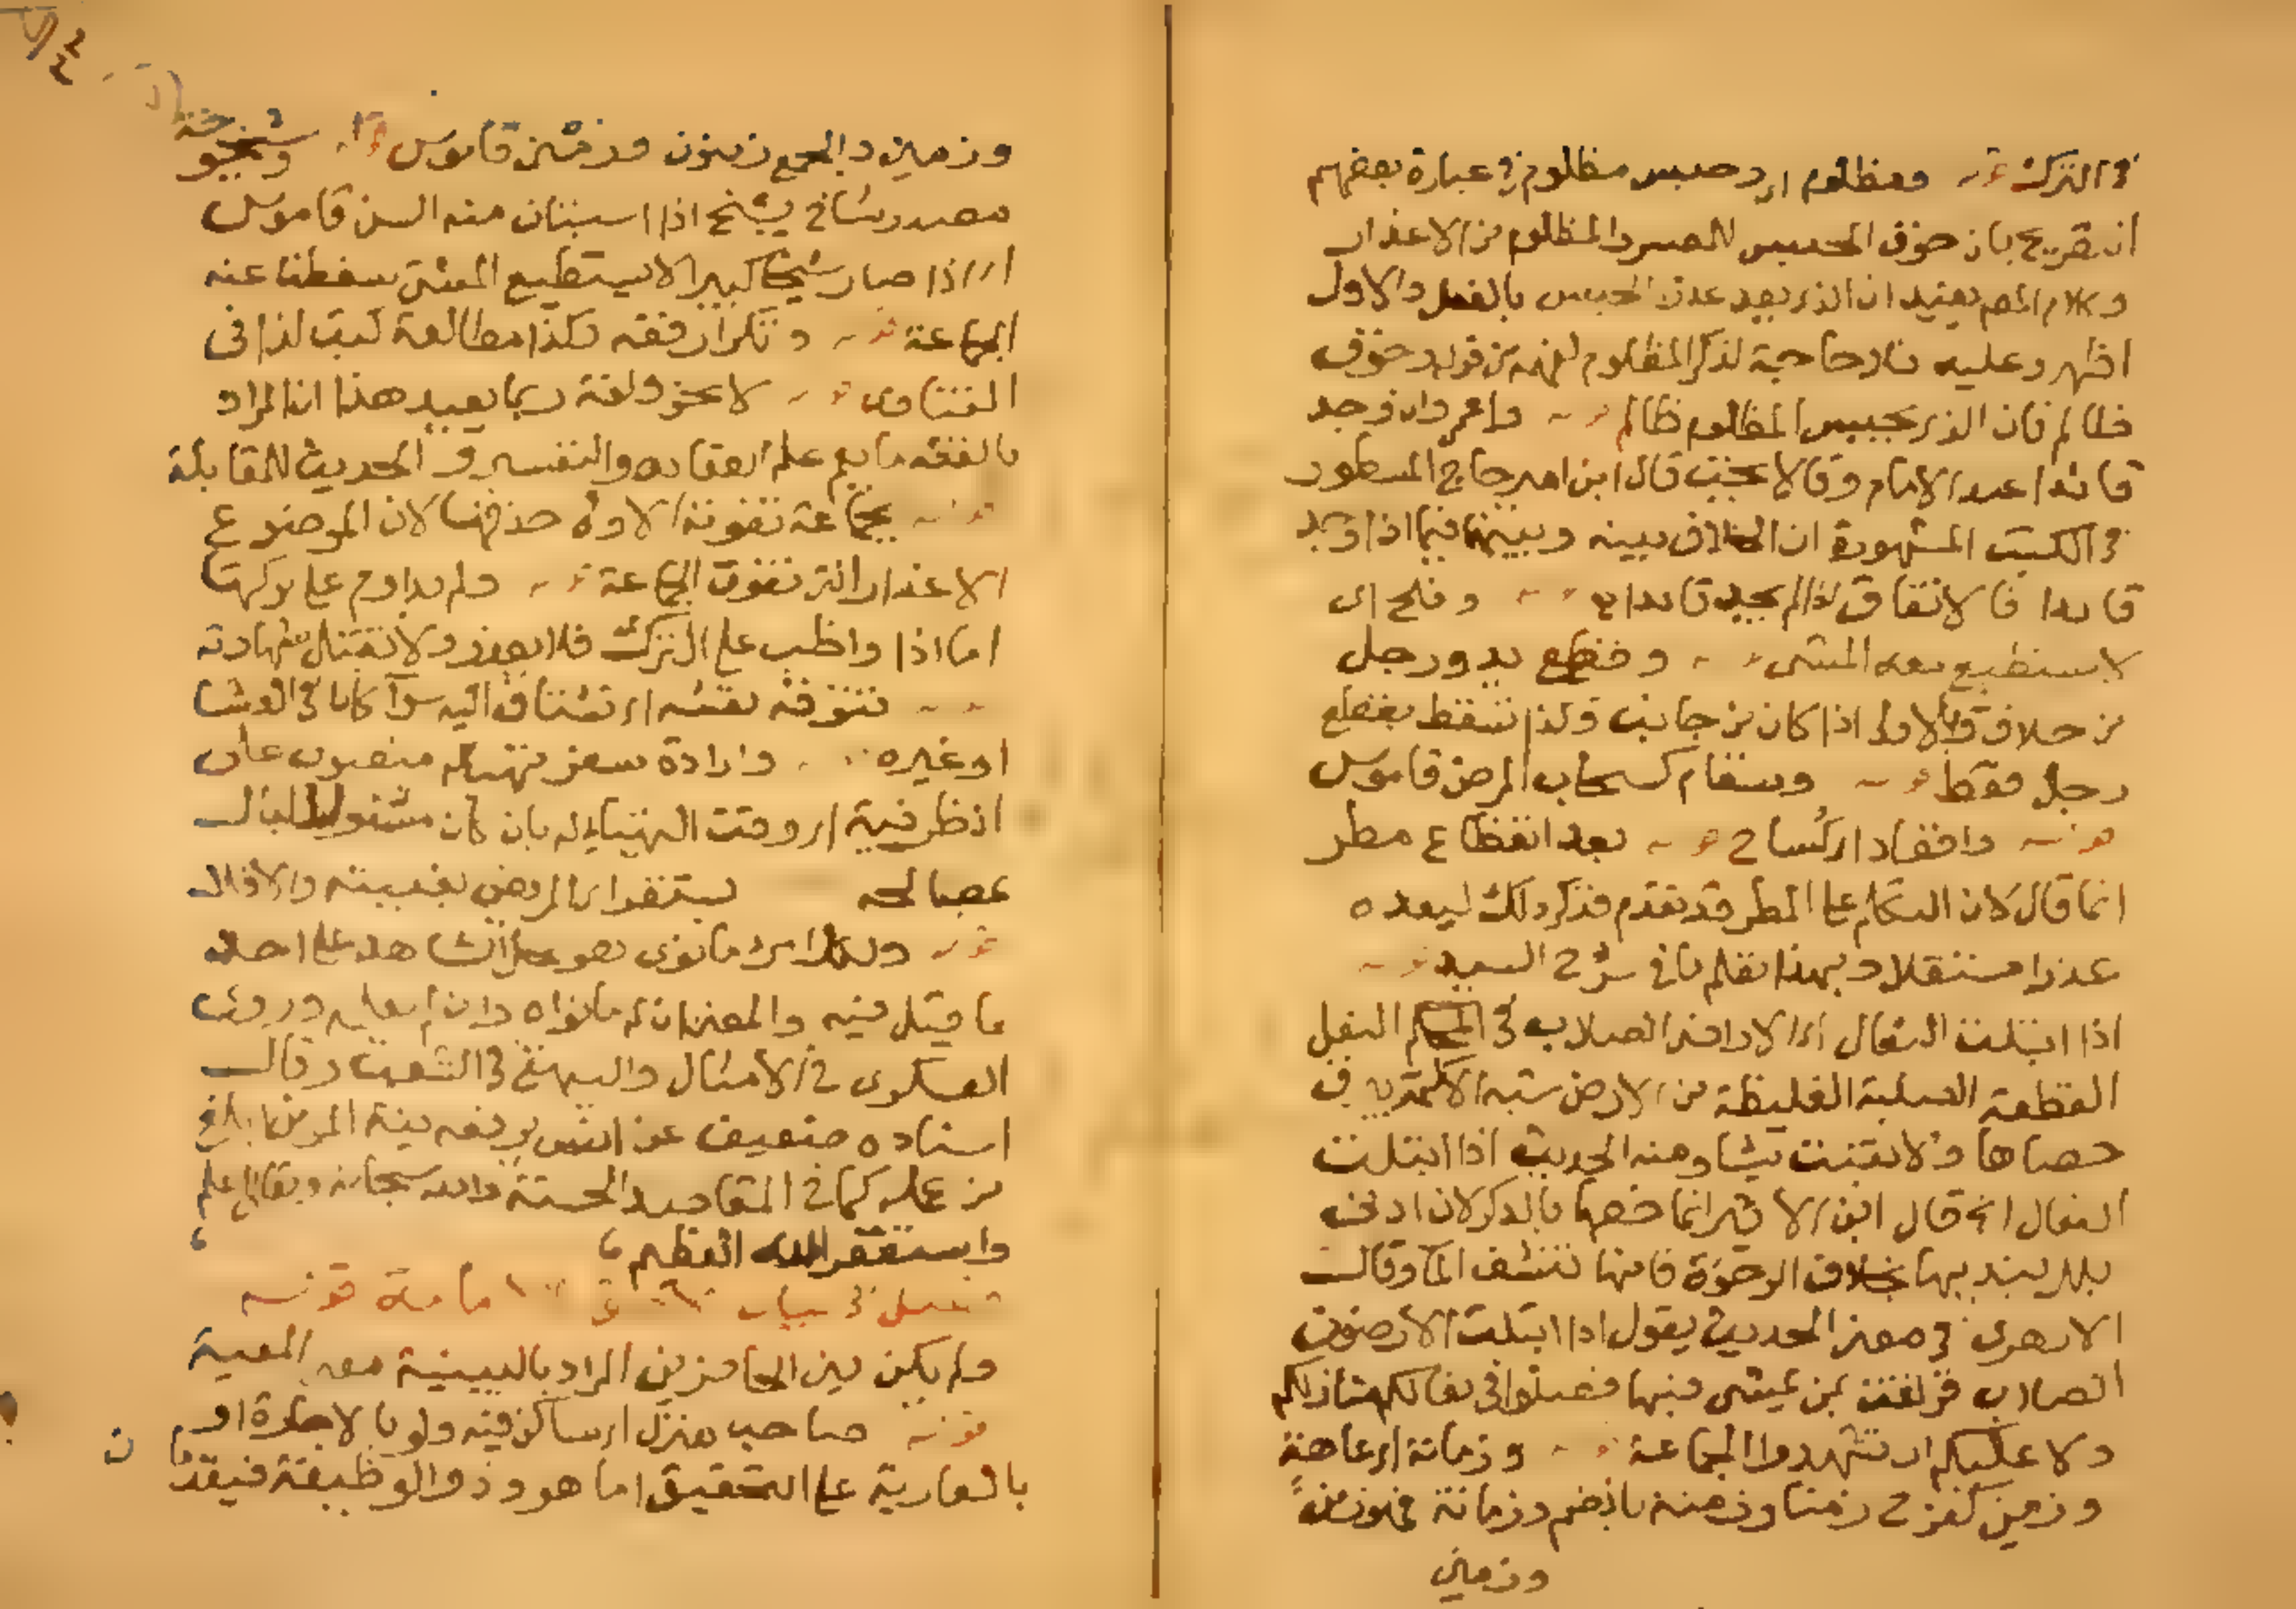 في الترك قوله ومظلوم او حبس مظلوم في عبارة بعضهم
التصريح بان خوف الحبس للمعسر والمظلوم من الاعذار
وكلام المص يفيد ان الذي يعد عذرا الحبس بالفعل والاول
اظهر وعليه فلا حاجة لذكر المظلوم لفهمه من قوله وخوف
ظالم فان الذي يحبس المظلوم ظالم قوله واعمى وان وجد
قائدا عند الامام وقالا تجب قال ابن امير حاج المسطور
في الكتب المشهورة ان الخلاف بينه وبينهما فيما اذا وجد
قائدا فالاتفاق اذا لم يجد قائدا قوله وفلج اي
لا يستطيع معه المشي قوله وقطع يد ورجل
من خلاف وبالاولى اذا كان من جانب وكذا تسقط بقطع
رجل فقط قوله وسقام كسحاب المرض قاموس
قوله واقعاد اي كساح قوله بعد انقطاع مطر
انما قال لان الكلام على المطر قد تقدم فذكر ذلك ليعده
عذرا مستقلا وبهذا تعلم ما في شرح السيد قوله
اذا ابتلت النعال اي الاراضي الصلاب في النعل
القطعة الصلبة الغليظة من الارض شبه الاكمة يبرق
حصاها ولا تنبت شيئا ومنه الحديث اذا ابتلت
النعال الخ قال ابن الاثير انما خصها بالذكر لان ادنى
بلل ينديها بخلاف الرخوة فانها تنشف الما وقال
الازهري في معنى الحديث يقول اذا ابتلت الارضون
الصلاب فزلقت بمن يمشي فيها فصلوا في نعالكم منازلكم
ولا عليكم ان تشهدوا الجماعة قوله وزمانة اي عاهة
وزمن كفرح زمنا وزمنة بالضم وزمانة فهو زمن
وزمين
وزمين والجمع زمنون وزمنى قاموس قوله وشيخوخة
مصدر شاخ يشيخ اذا استبان منه السن قاموس
اي اذا صار شيخا كبيرا لا يستطيع المشي سقطت عنه
الجماعة قوله وتكرار فقه وكذا مطالعة كتبه كذا في
الفتاوى قوله لا نحو ولغة ربما يفيد هذا ان المراد
بالفقه ما يعم علم العقائد والتفسير والحديث للمقابلة
قوله بجماعة تفوته الاولى حذفها لان الموضوع
الاعذار التي تفوت الجماعة قوله ولم يداوم على تركها
اما اذا واظب على الترك فلا يعذر ولا تقبل شهادته
قوله تتوقه نفسه اي تشتاق اليه سوآ كان في العشا
او غيره قوله وارادة سفر تهيأ له منصوب على
الظرفية اي وقت التهيئ له بان كان مشغول البال
بمصالحه يستضر اي المريض بغيبته والا فلا
قوله ولكل امرئ ما نوى هو محل الشاهد على احد
ما قيل فيه والمعنى ان له ما نواه وان لم يعمله وروى
العسكري في الامثال والبيهقي في الشعب وقال
اسناده ضعيف عن انس يرفعه نية المرء ابلغ
من عمله كما في المقاصد الحسنة والله سبحانه وتعالى اعلم
واستغفر الله العظيم
فصل في بيان قوله
ولم يكن بين الحاضرين المراد بالبينية معه المعية
قوله صاحب منزل اي ساكن فيه ولو بالاجارة او
بالعارية على التحقيق اما هو وذو الوظيفة فيقدمان